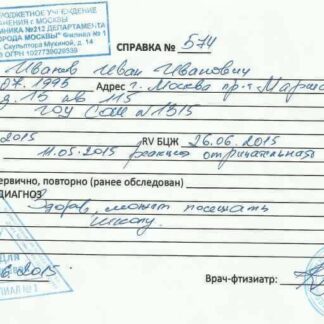 БЮДЖЕТНОЕ УЧРЕЖДЕНИЕ
АНЕНИЯ г. МОСКВЫ
ИНИКА №212 ДЕПАРТАМЕНТА
ГОРОДА МОСКВЫ" Филиал № 1
Скульптора Мухиной, д. 14
ОГРН 1027739020539
СПРАВКА № 574
Иванов Иван Иванович
07.1995 Адрес г. Москва пр-т Марша
д. 13 кв 115
ГОУ СОШ №1315
2015 RV БЦЖ 26.06.2015
11.05.2015 реакция отрицательная
ервично, повторно (ранее обследован)
ДИАГНОЗ
Здоров, может посещать
школу.
6.2015
Врач-фтизиатр:
ДЛЯ
ЛИАЛ № 1